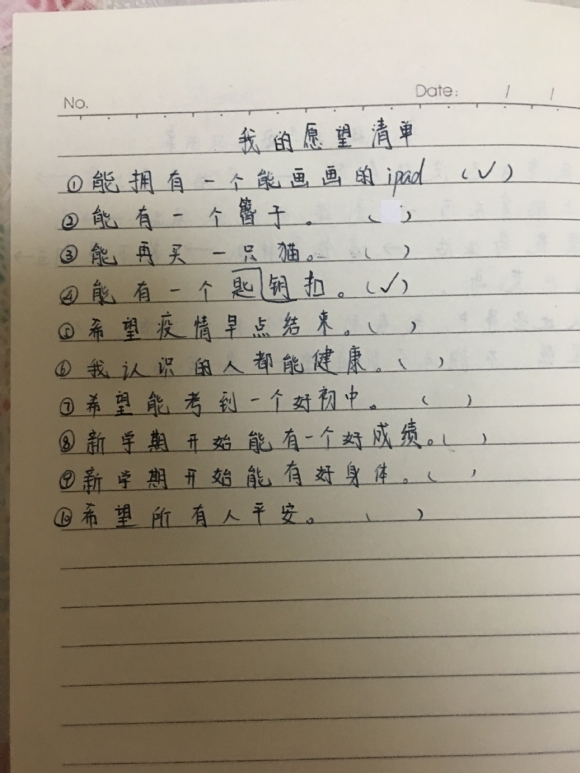 No.
Date: / /
我的愿望清单
①能拥有一个能画画的ipad (✓)
②能有一个簪子。( )
③能再买一只猫。( )
④能有一个匙钥扣。(✓)
⑤希望疫情早点结束。( )
⑥我认识的人都能健康。( )
⑦希望能考到一个好初中。( )
⑧新学期开始能有一个好成绩。( )
⑨新学期开始能有好身体。( )
⑩希望所有人平安。( )